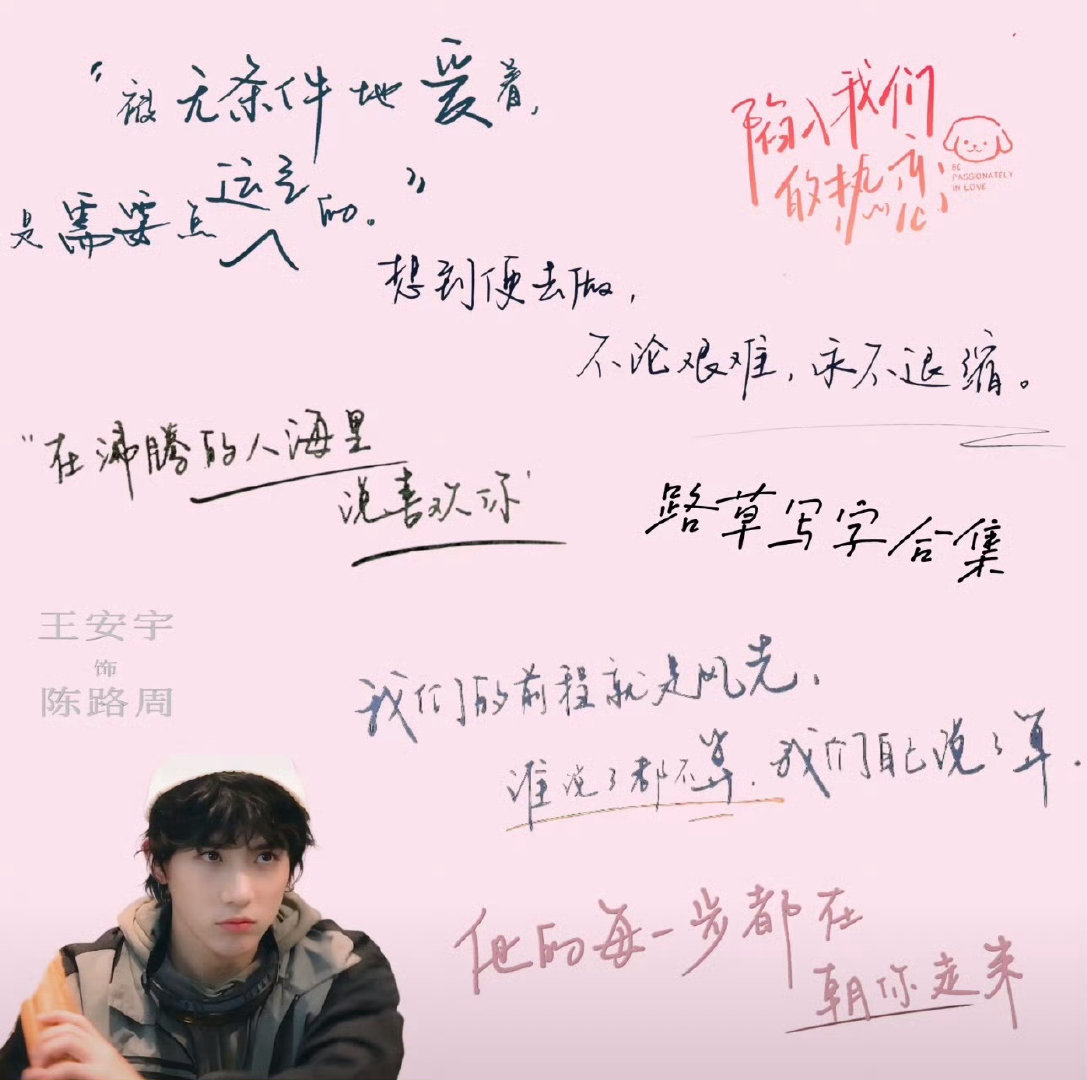 “被无条件地爱着，
是需要点运气的。”
陷入我们
的热恋
BE
PASSIONATELY
IN LOVE
想到便去做，
不论艰难，永不退缩。
“在沸腾的人海里
说喜欢你”
路草写字合集
王安宇
饰
陈路周
我们的前程就是风光，
谁说了都不算，我们自己说了算．
他的每一步都在
朝你走来